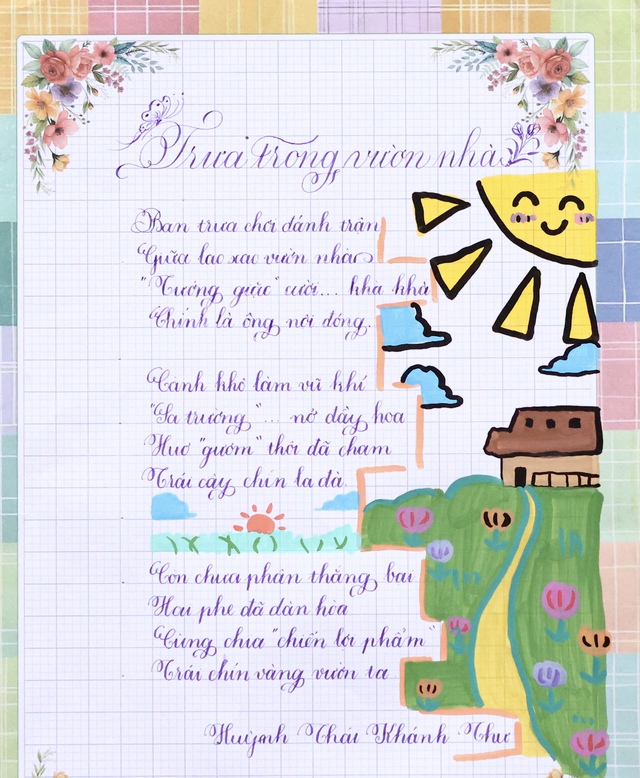 Trưa trong vườn nhà
Ban trưa chơi đánh trận
Giữa lao xao vườn nhà
"Tướng giặc" cười... kha khà
Chính là ông nội đóng.
Cành khô làm vũ khí
"Sa trường"... nở đầy hoa
Huơ "gươm" thôi đã chạm
Trái cây chín la đà
Còn chưa phân thắng bại
Hai phe đã dàn hòa
Cùng chia "chiến lợi phẩm"
Trái chín vàng vườn ta
Huỳnh Thái Khánh Thư